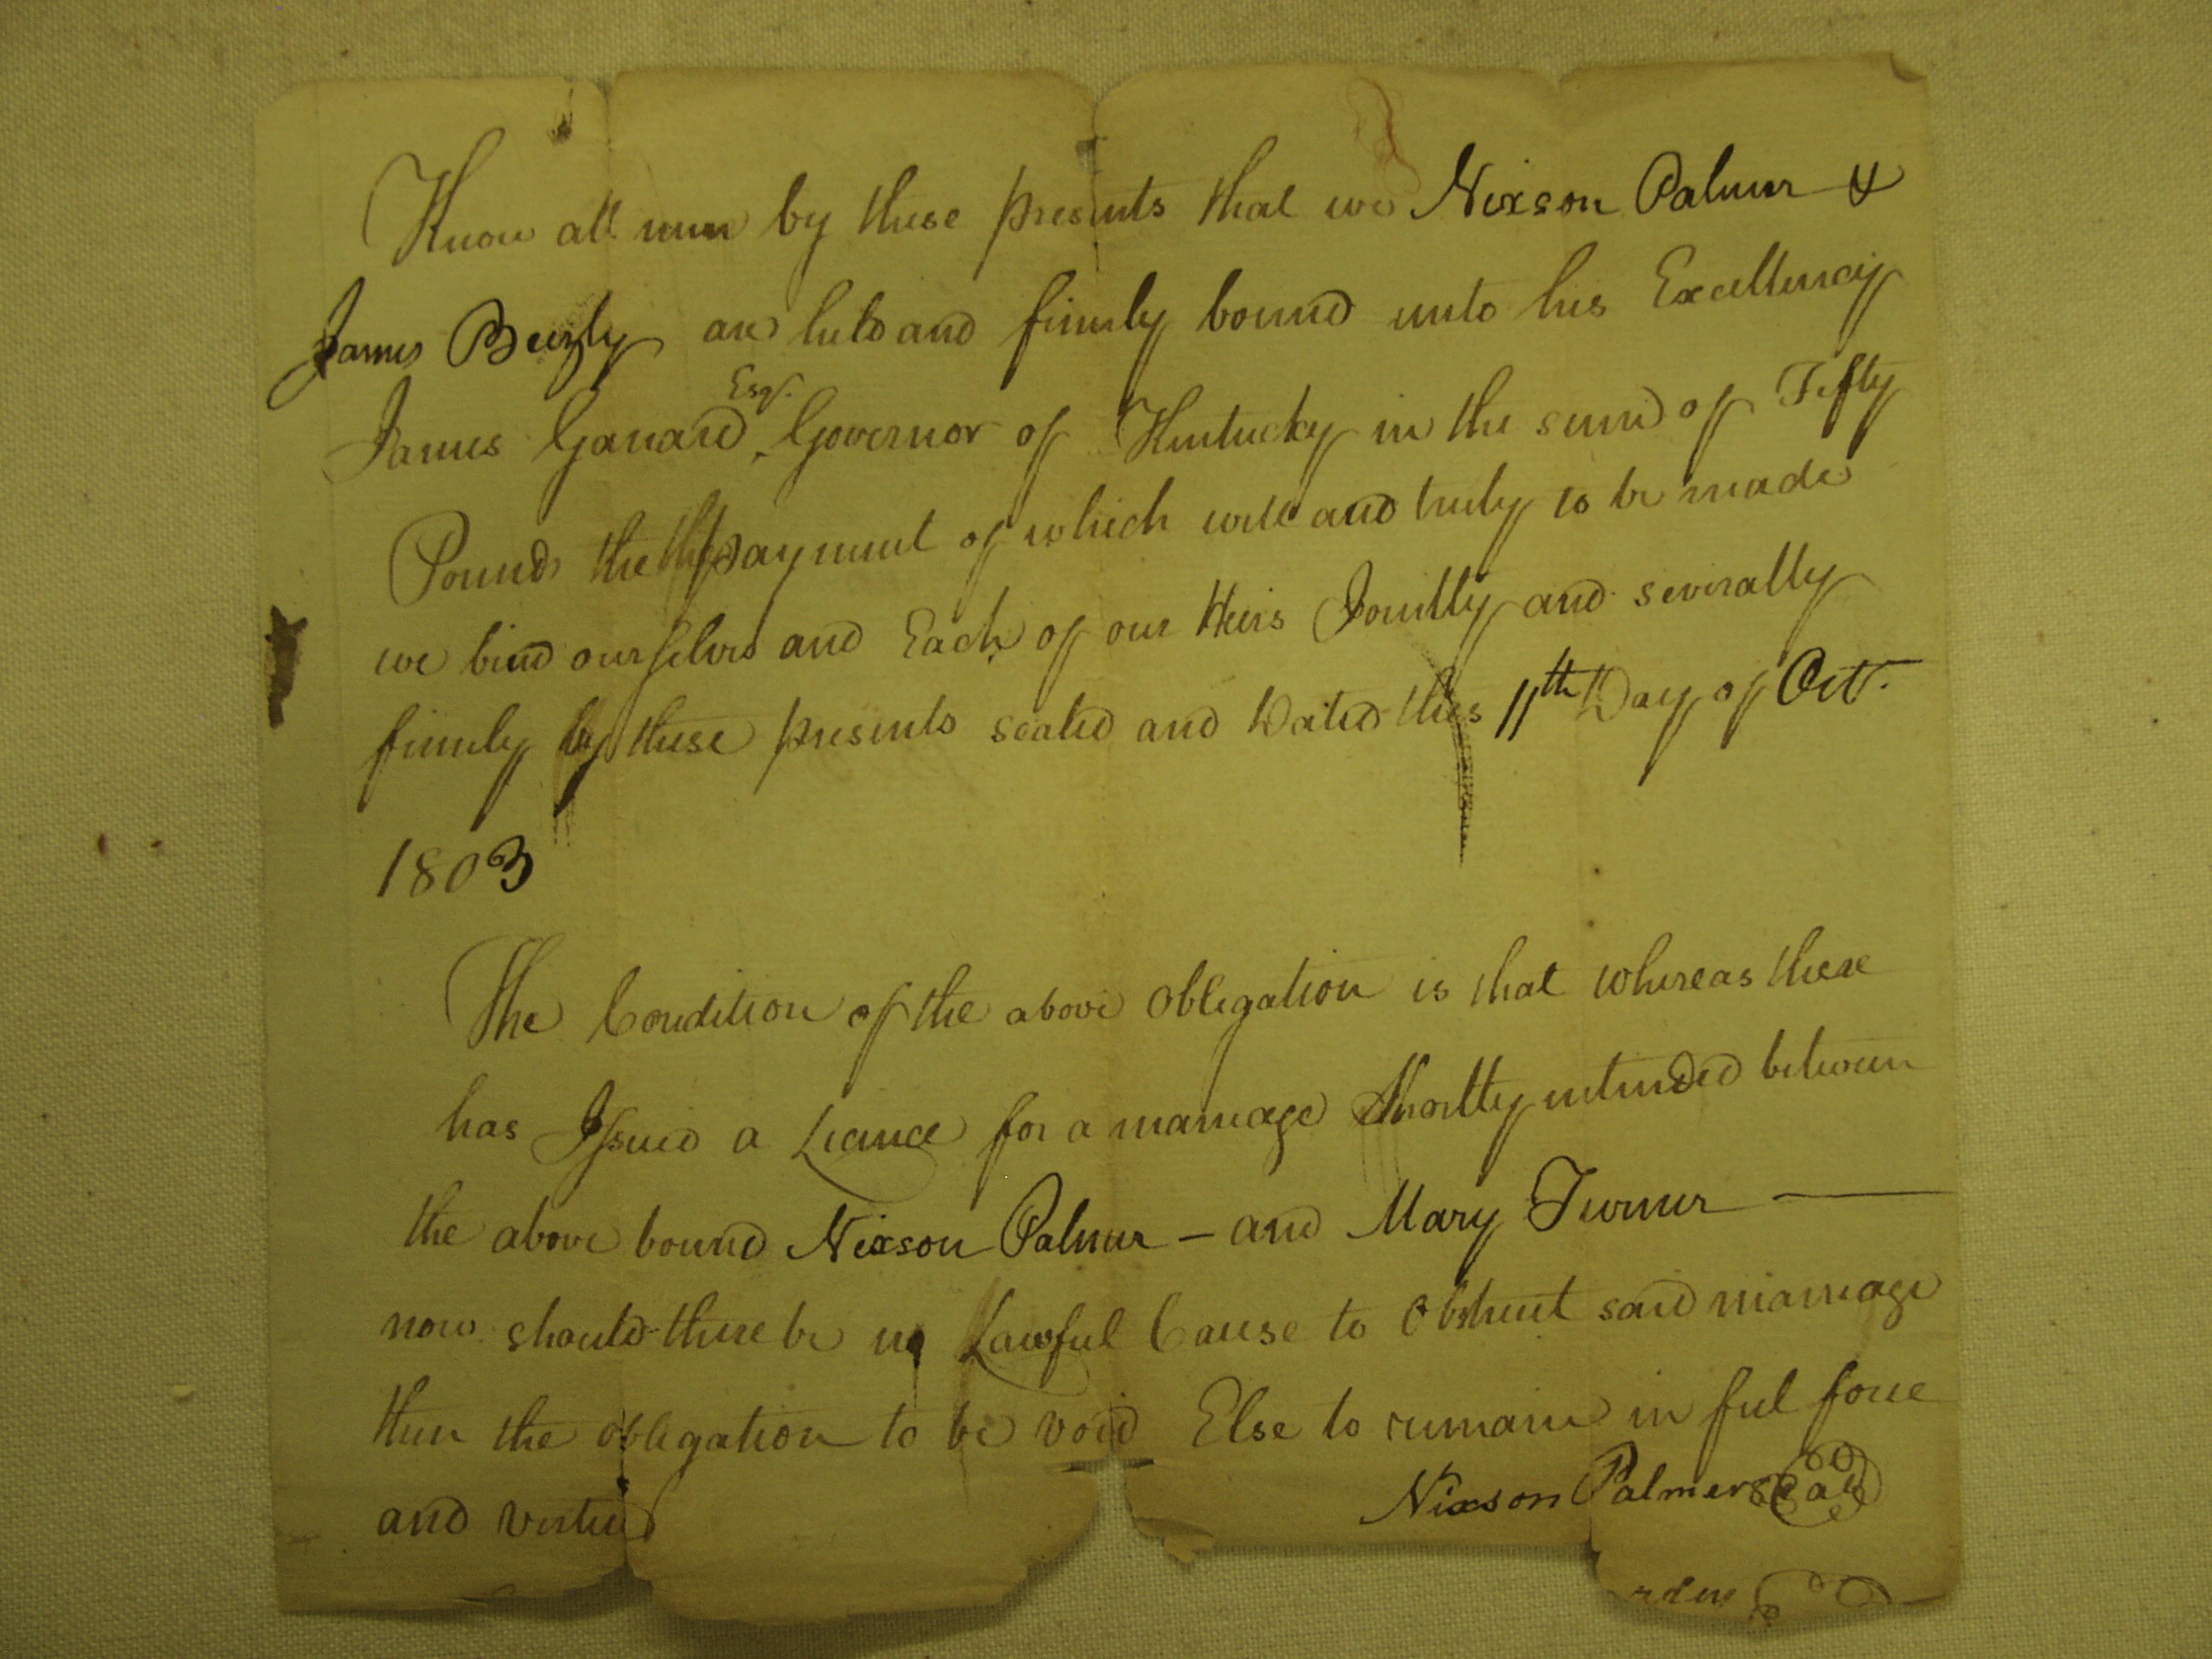 Know all men by these presents that we Nixson Palmer &
James Beezly are held and firmly bound unto his Excellency
James Garrard Esqr. Governor of Kentucky in the sum of Fifty
Pounds the the payment of which well and truly to be made
we bind ourselves and Each of our Heirs Jointly and severally
firmly by these presents sealed and Dated this 11th Day of Oct.
1803
The Condition of the above obligation is that whereas there
has Issued a Licence for a marriage Shortly intended between
the above bound Nixson Palmer - and Mary Turner —
now should there be no Lawful Cause to Obstruct said marriage
then the obligation to be void Else to remain in ful force
and vertue
Nixson Palmer Seal